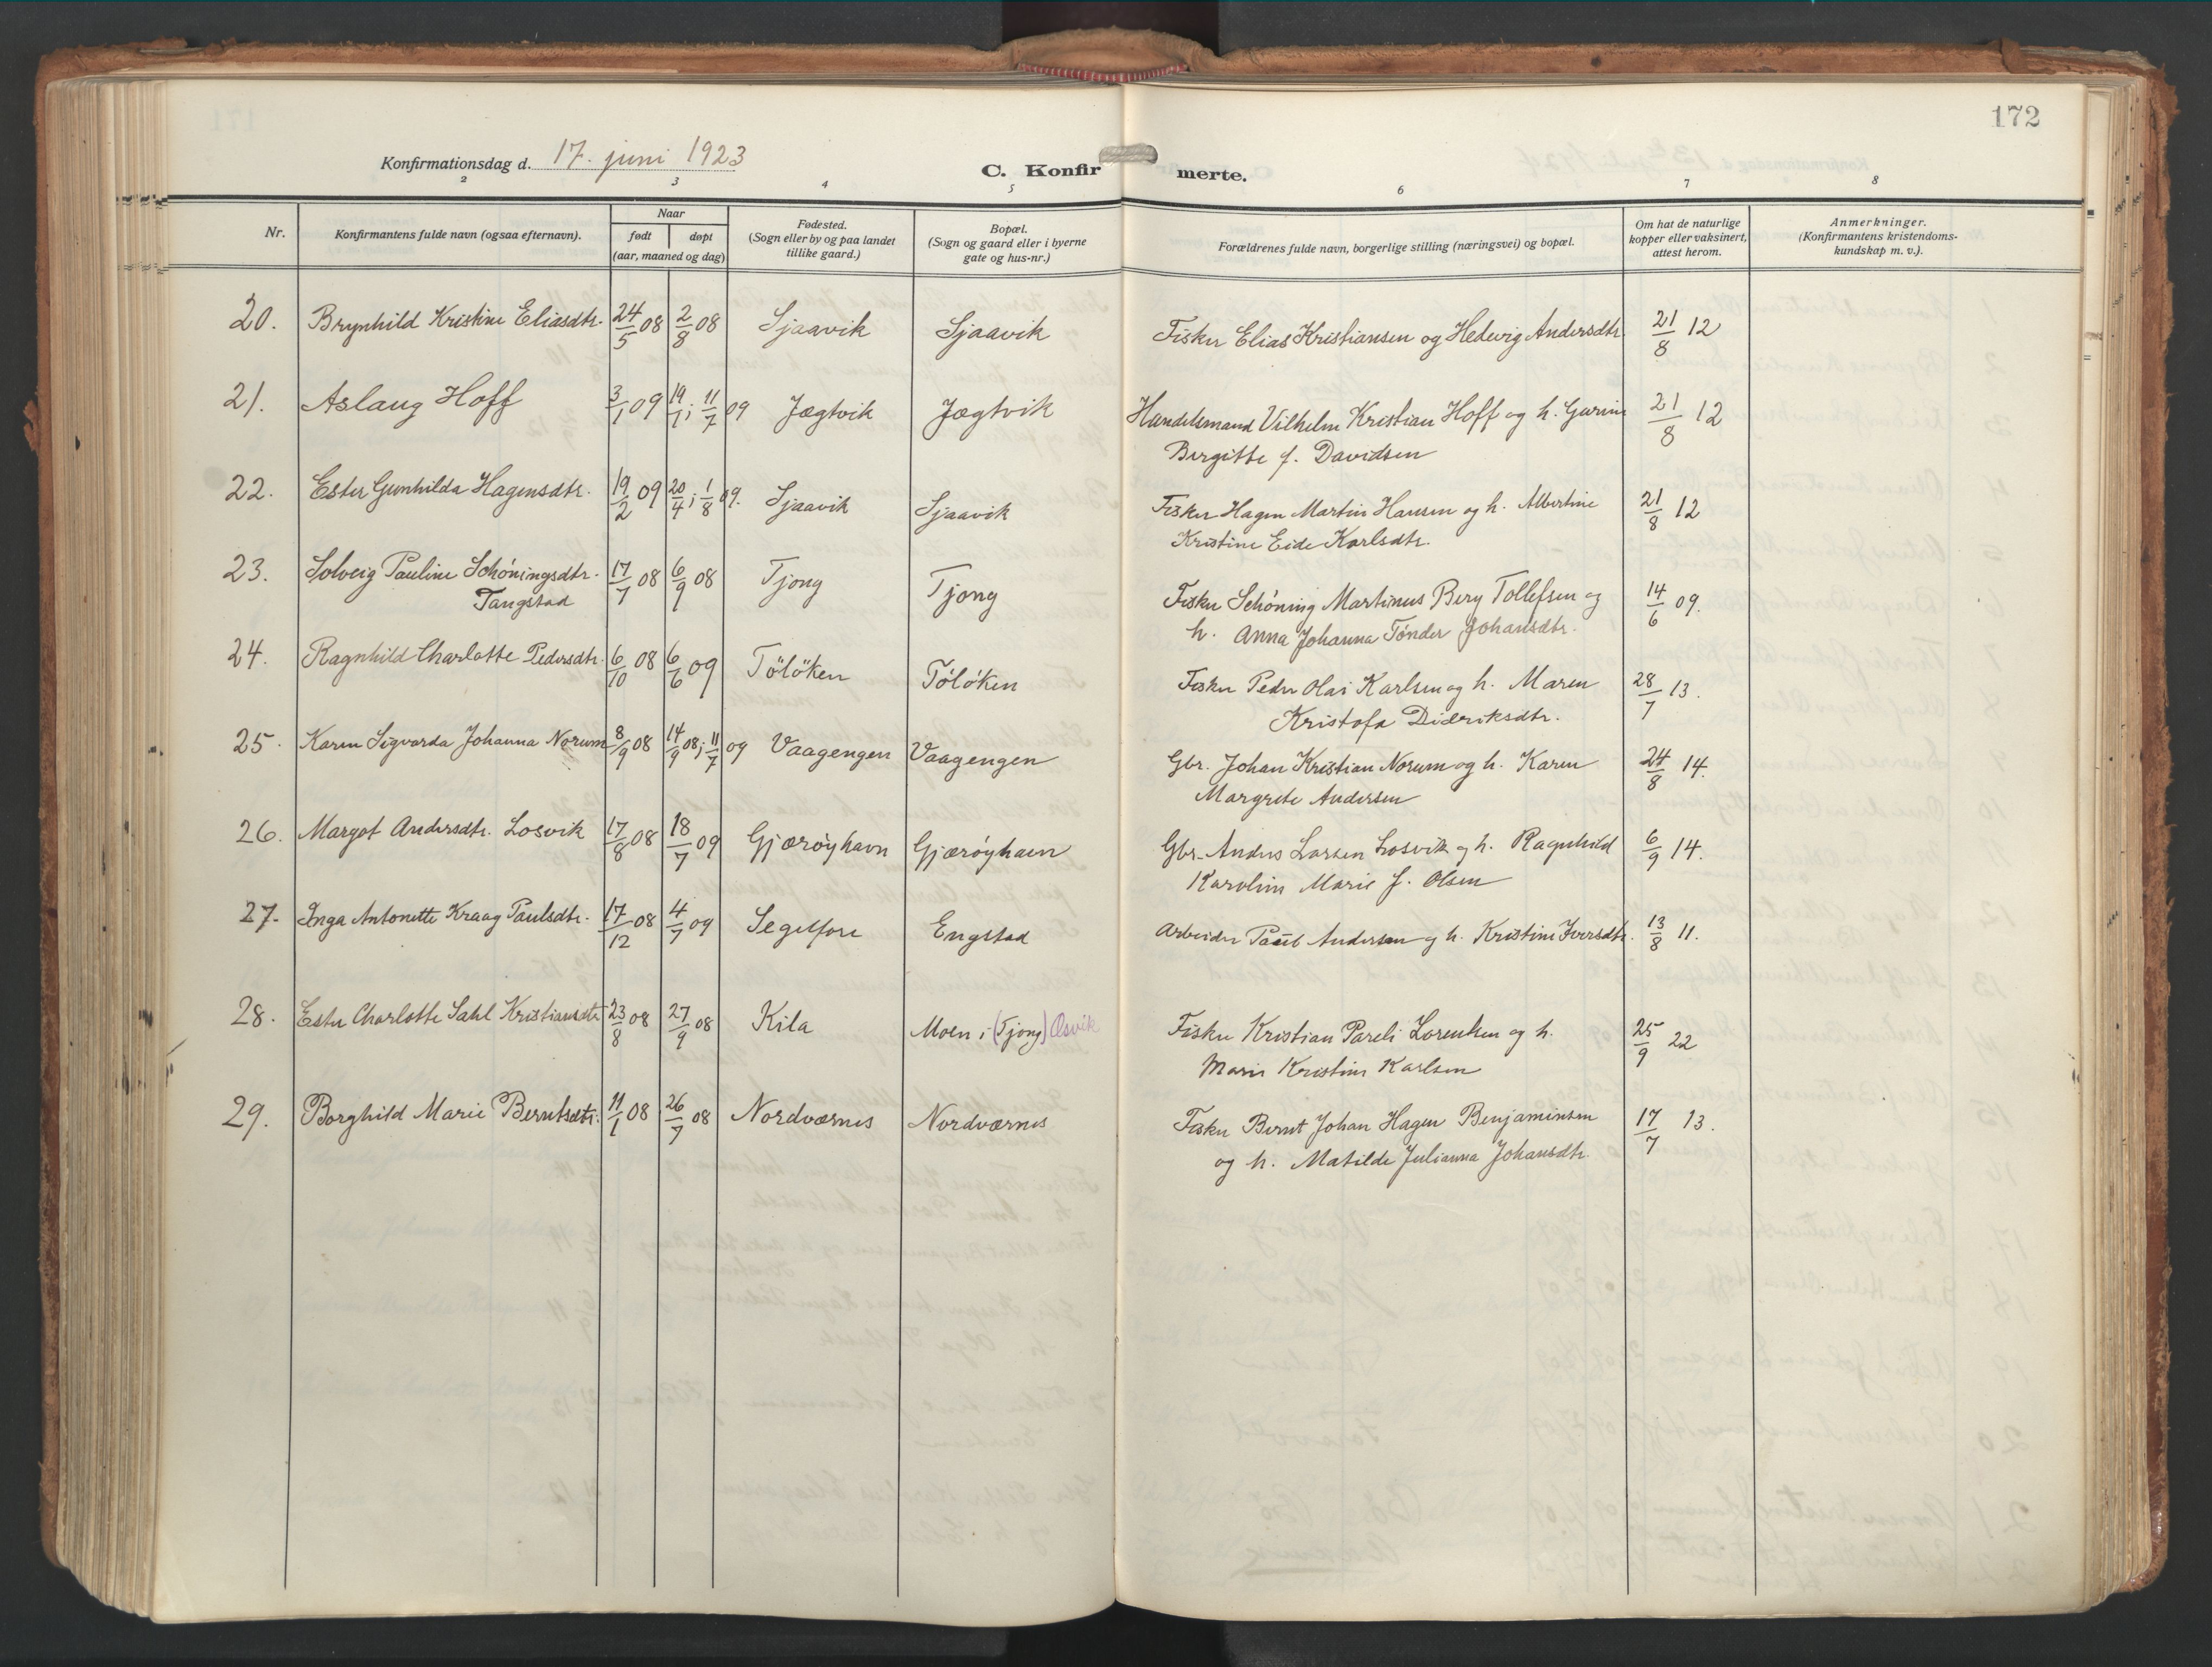 172
Konfirmationsdag d. 17. juni 1923
C. Konfirmerte.
2 3 4 5 6 7 8
Nr.
Konfirmantens fulde navn (ogsaa efternavn).
Naar
født døpt
(aar, maaned og dag)
Fødested.
(Sogn eller by og paa landet
tillike gaard.)
Bopæl.
(Sogn og gaard eller i byerne
gate og hus-nr.)
Forældrenes fulde navn, borgerlige stilling (næringsvei) og bopæl.
Om hat de naturlige
kopper eller vaksinert,
attest herom.
Anmerkninger.
(Konfirmantens kristendoms-
kundskap m. v.).
20. Brynhild Kristine Eliasdtr. 24/5 08 2/8 08 Sjaavik Sjaavik Fisker Elias Kristiansen og Hedevig Andersdtr. 21/8 12
21. Aslaug Hoff 3/1 09 19/1; 11/7 09 Jægtvik Jægtvik Handelsmand Vilhelm Kristian Hoff og h. Gurine 21/8 12
Birgitte f. Davidsen
22. Ester Gunhilda Hagensdtr. 19/2 09 20/4; 1/8 09. Sjaavik Sjaavik Fisker Hagen Martin Hansen og h. Albertine 21/8 12
Kristine Eide Karlsdtr.
23. Solveig Pauline Schöningsdtr. 17/7 08 6/9 08 Tjong Tjong Fisker Schöning Martinus Berg Tollefsen og 14/6 09.
Tangstad h. Anna Johanna Tönder Johansdtr.
24. Ragnhild Charlotte Pedersdtr. 6/10 08 6/6 09 Tölöken Tölöken Fisker Peder Olai Karlsen og h. Maren 28/7 13.
Kristofa Dideriksdtr.
25. Karen Sigvarda Johanna Norum 8/9 08 14/9 08; 11/7 09 Vaagengen Vaagengen Gbr. Johan Kristian Norum og h. Karen 24/8 14.
Margrete Andersen
26. Margot Andersdtr. Losvik 17/8 08 18/7 09 Gjærøyhavn Gjærøyhavn Gbr. Anders Larsen Losvik og h. Ragnhild 6/9 14.
Karoline Marie f. Olsen
27. Inga Antonette Kraag Paulsdtr. 17/12 08 4/7 09 Segelfore Engstad Arbeider Paul Andersen og h. Kristine Iversdtr. 13/8 11.
28. Ester Charlotte Sahl Kristiansdtr 23/8 08 27/9 08 Kila Moen i (Tjong) Øsvik Fisker Kristian Pareli Lorentsen og h. 25/9 22
Marie Kristine Karlsen
29. Borghild Marie Berntsdtr. 11/1 08 26/7 08 Nordværnes Nordværnes Fisker Bernt Johan Hagen Benjaminsen 17/7 13.
og h. Matilde Julianna Johansdtr.